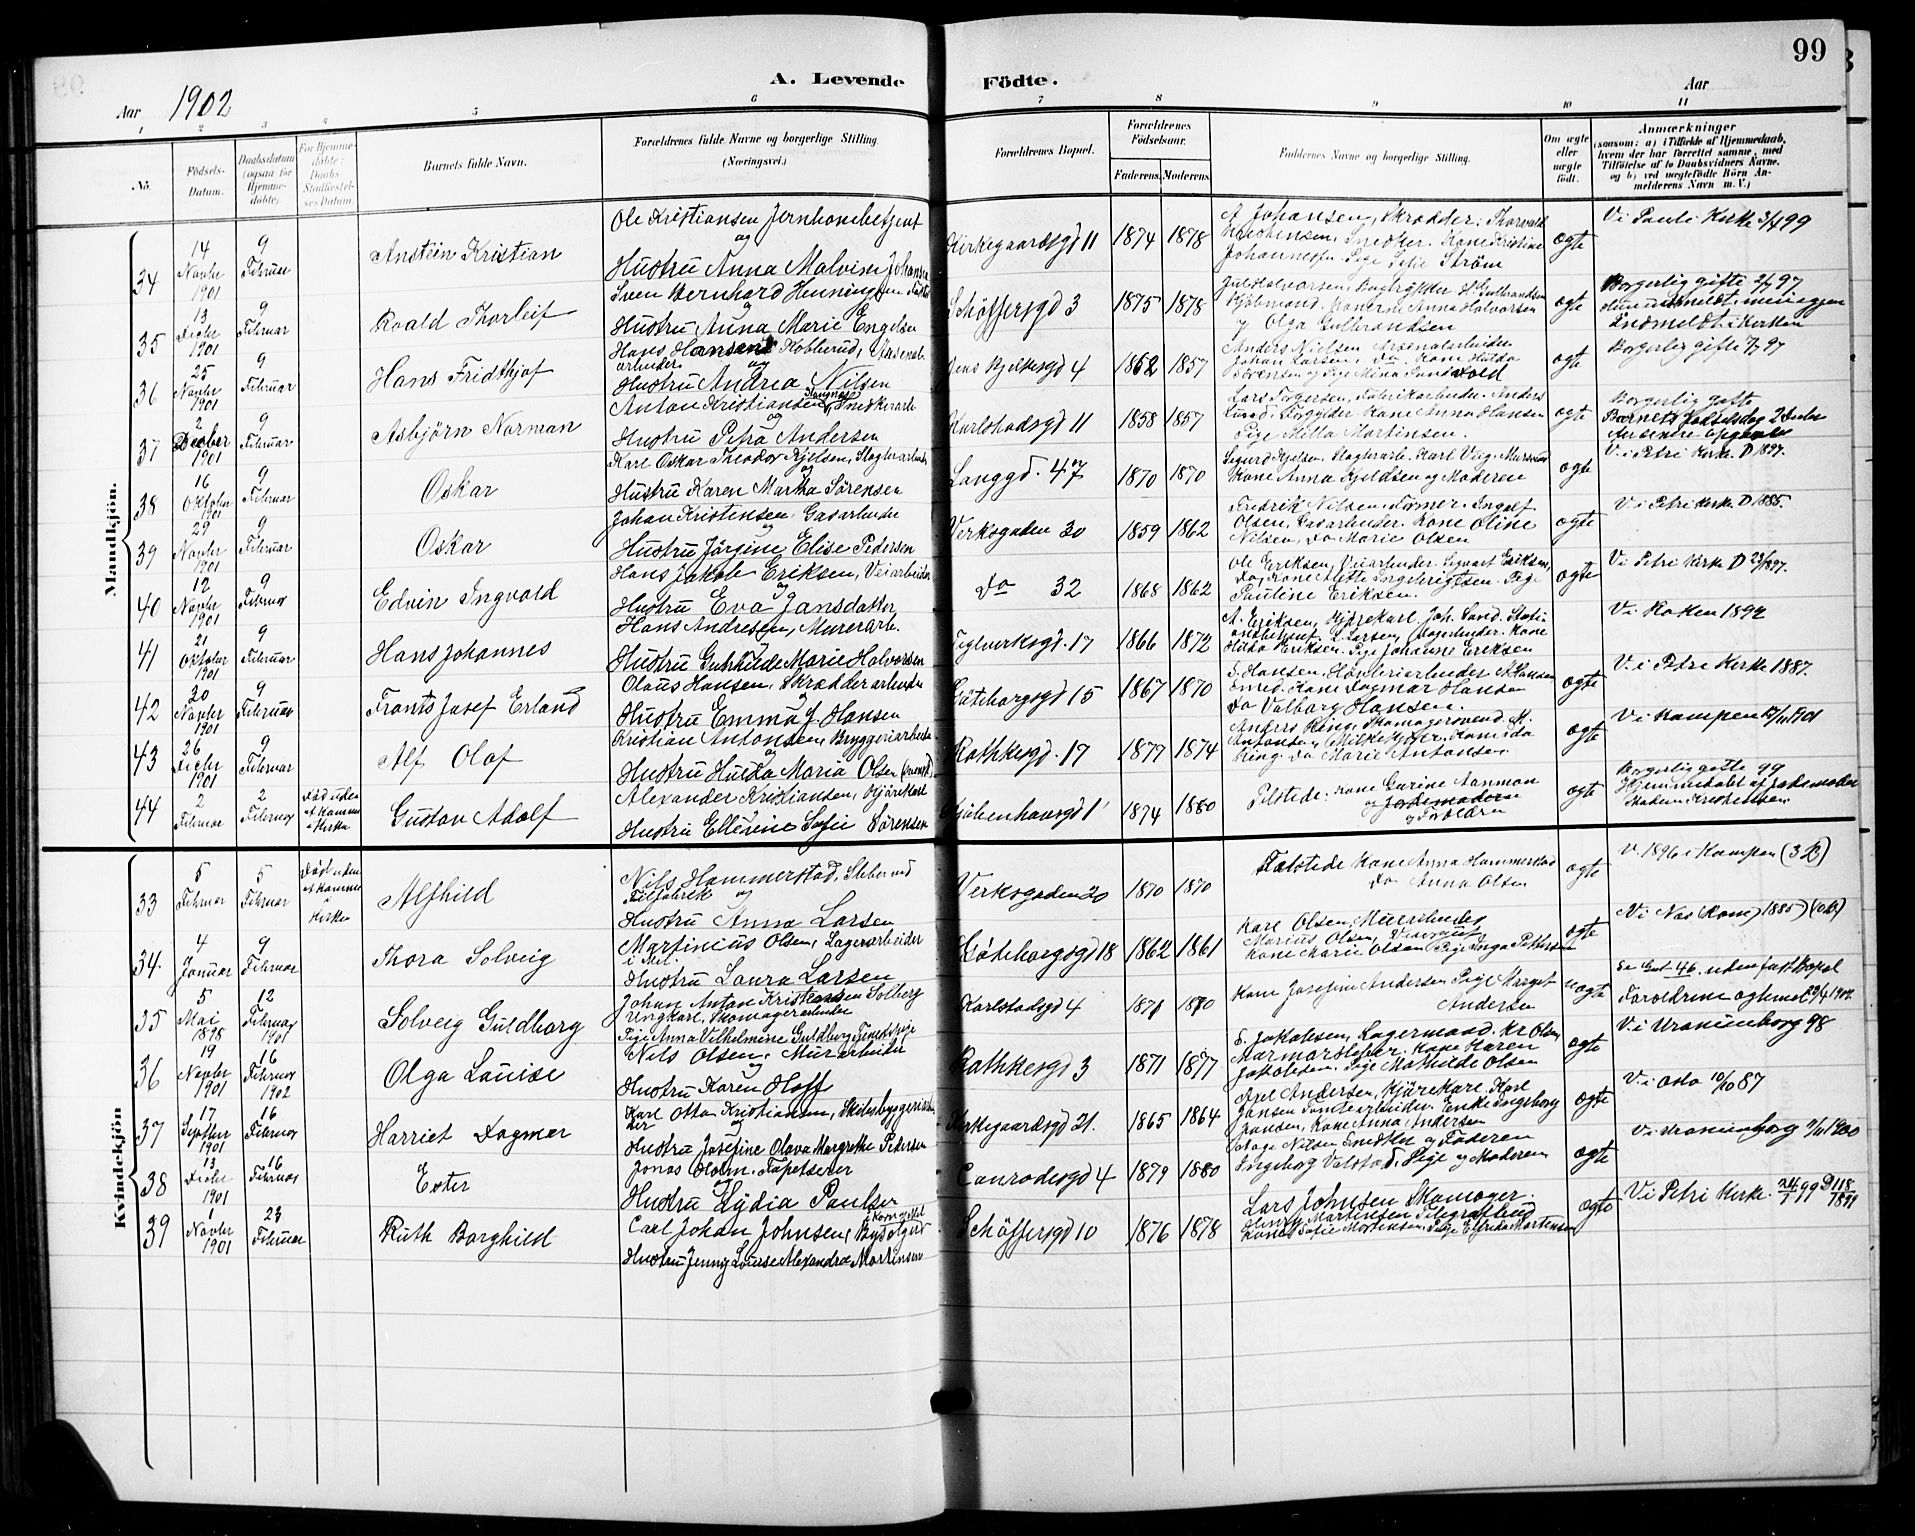 99
A. Levende Födte.
Aar 1902
Aar
1 2 3 4 5 6 7 8 9 10 11
No.
Födsels-Datum.
Daabsdatum (ogsaa for Hjemmedöbte).
For Hjemmedöbte: Daabs Stadfæstelses Datum.
Barnets fulde Navn.
Forældrenes fulde Navne og borgerlige Stilling. (Næringsvei.)
Forældrenes Bopæl.
Forældrenes Födselsaar.
Faderens. Moderens.
Faddernes Navne og borgerlige Stilling.
Om ægte eller uægte födt.
Anmærkninger
(saasom: a) i Tilfælde af Hjemmedaab,
hvem der har forrettet samme, med
Tilföielse af to Daabsvidners Navne.
og b) ved uægtefödte Börn Anmelderens Navn m. V.)
Mandkjön.
34 14 Novbr 1901 9 Februar Anstein Kristian
Ole Kristiansen Jernhanebetjent
og
Hustru Anna Malvine Johansen
Kirkegaardsgd 11 1874 1878
A Johansen, Skrædder. Thorvald
Johannesen, Snedker. Kone Kristine
Johannesen Pige Sofie Ström
ægte Vi Pauli Kirke 3/4 99
35 13 Decbr 1901 9 Februar Roald Thorleif
Sven Bernhard Henningsen
og
Hustru Anna Marie Engelsen
Schöffersgd 3 1875 1878
Olga Gulbrandsen
ægte Borgerlig gifte 97
Indmeldt i Kirken
36 25 Novbr 1901 9 Februar Hans Fridthjof
Hans Hansen Kobberud, Arsenalarbeider
og
Hustru Andrea Nilsen
Jens Bjelkesgd 4 1862 1857
Anders Nielsen Arsenalarbeider
Johan Larsen, do Kone Hulda
Sörensen og Pige Mina Sundvold
ægte Borgerlig gifte 97
37 2 Decber 1901 9 Februar Asbjörn Norman
Anton Kristiansen Snedkerarb
og
Hustru Petra Andersen
Karlstadsgd 11 1858 1857
Lars Torgersen, Fabrikarbeider. Anders
Lund. Forgylder Kone Anna Hansen
Pige Milla Martinsen.
ægte Borgerlig gifte
Barnets Födselsdag 2 Decbr
38 16 Oktober 1901 9 Februar Oskar
Karl Oskar Theodor Kjelsen, Slagterarbeider
og
Hustru Karen Martha Sörensen
Langgd. 47 1870 1870
Sigurd Kjelsen, Slagterarb. Karl Vaag. Mursvend
Kone Anna Kjeldsen og Moderen
ægte Vi Petri Kirke D 1897.
39 29 Novbr 1901 9 Februar Oskar
Johan Kristensen, Gasarbeider
og
Hustru Jörgine Elise Pedersen
Verksgaden 30 1859 1862
Fredrik Nilsen Former. Ingolf
Olsen, Gasarbeider. Kone Oline
Nilsen, do Marie Olsen
ægte Vi Petri Kirke D 1885.
40 12 Novbr 1901 9 Februar Edvin Ingvald
Hans Jakob Eriksen, Veiarbeider
og
Hustru Eva Jansdatter
do 32 1868 1862
Ole Eriksen, Veiarbeider. Sigvart Eriksen,
do, Kone Mette Ingebrigtsen. Pige
Pauline Eriksen.
ægte Vi Petri Kirke D 23/1897.
41 21 Oktober 1901 9 Februar Hans Johannes
Hans Andresen, Murerarb.
og
Hustru Gunhilde Marie Halvorsen
Teglverksgd. 17 1866 1872
A. Eriksen, Kjörekarl Joh. Sand. Stationsbetjent.
L. Larsen, Lagerbeider. Kone
Hilda Eriksen. Pige Johanne Eriksen
ægte Vi Røken 1892
42 30 Novbr 1901 9 Februar Frants Josef Erland
Olaus Hansen, Skrædderarbeider
og
Hustru Emma J Hansen
Göteborgsgd 15 1867 1870
Smed. Kone Dagmar Hansen
do Valborg Hansen.
ægte Vi Petri Kirke 1887.
43 26 Decbr 1901 9 Februar Alf Olaf
Kristian Antonsen, Bryggeriarbeider
og
Hustru Hulda Maria Olsen (svensk)
Rathkesgd. 17 1877 1874
Anders King. Skomagersvend. K.
Antonsen,
King. do Marie Antonsen.
ægte Vi Kampen 17/11 1901
44 2 Februar 2 Februar Död uden at komme i Kirke Gustav Adolf
Alexander Kristiansen, Kjörekarl
og
Hustru Ellevine Sofie Sörensen
Kjöbenhavnsgd 1 1874 1880
Tilstede: Kone Gurine Aanmon
og Jordemoderen
og Forældrene
ægte Borgerlig gifte 99
Hjemmedöbt af Jordemoder
Kvindekjön
33 5 Februar 5 Februar Död uden at komme i Kirken Alfhild
Nils Hammerstad, Sliber ved
Filfabrik og
Hustru Anna Larsen
Verksgaden 20 1870 1870
Tilstede Kone Anna Hammerstad
do Anna Olsen
ægte V. 1896 i Kampen (3 B)
34. 4 Januar 9 Februar Thora Solveig
Martinius Olsen, Lagerarbeider
i Mel.
Hustru Laura Larsen
Göteborgsgd 18 1862 1861
Karl Olsen Murerbeider
Marius Olsen, Visergut,
Kone Marie Olsen Pige Inga Pettersen
ægte Vi Næs (Rom) 1885
35 5 Mai 1898 12 Februar 1901 Solveig Guldborg
Johan Anton Kristiansen Solberg
Ungkarl, Skomagerarbeider
Pige Anna Vilhelmine Guldborg Tjenestepige
Karlstadsgd 4 1871 1870
Kone Josefine Andersen Pige Margit
Andersen
uægte Se Gut 46. uden fast Bopæl
Forældrene ægtemol 23/4 1902
36 19 Novbr 1901 16 Februar 1902 Olga Louise
Nils Olsen, Murarbeider
og
Hustru Karen Hoff
Rathkesgd 3 1871 1877
S. Jakobsen, Lagermand. Kr Olsen,
Marmorsliber. Kone Karen
Jakobsen. Pige Mathilde Olsen
ægte Vi Uranienborg 98
37 17 Septbr 1901 16 Februar Harriet Dagmar
Karl Otto Kristiansen, Skibsbyggeriarbeider
og
Hustru Josefine Olava Margrethe Pedersen
Kirkegaardsgd 21. 1865 1864
Axel Andersen, Kjörekarl. Karl
Jansen Tomtearbeider. Enke Ingeborg
Jansen, Kone Anna Andersen
ægte Vi Oslo 10/10 87
38 13 Decbr 1901 16 Februar Ester
Jonas Holm. Tapetserer
og
Hustru Lydia Paulsen
Conradesgd 4 1879 1880
Aage Nilsen Snedker og Faderen
Ingeborg Valstad. Pige og Moderen
ægte Vi Uranienborg 1900
39 1 Novbr 1901 23 Februar Ruth Borghild
Carl Johan Johnsen, Bysölger
Hustru Jenny Lovise Alexandra Mortensen
Schöffersgd 10 1876 1878
Lars Johnsen Skomager.
Henry Martinsen Telegrafbud
Kone Sofie Mortensen, Pige Elfrida Mortensen
ægte Vi Petri Kirke. 24/1 99 D 118/1899